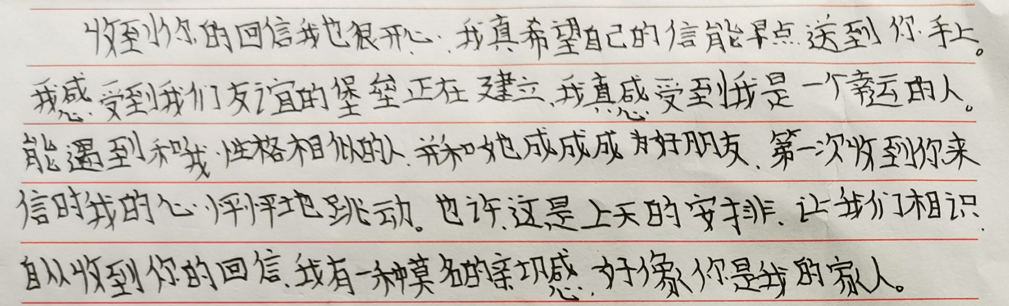 收到你的回信我也很开心.我真希望自己的信能早点送到你手上。
我感受到我们友谊的堡垒正在建立,我真感受到我是一个幸运的人。
能遇到和我性格相似的人.并和她成成成为好朋友.第一次收到你来
信时我的心怦怦地跳动。也许这是上天的安排.让我们相识.
自从收到你的回信.我有一种莫名的亲切感.好像你是我的家人。